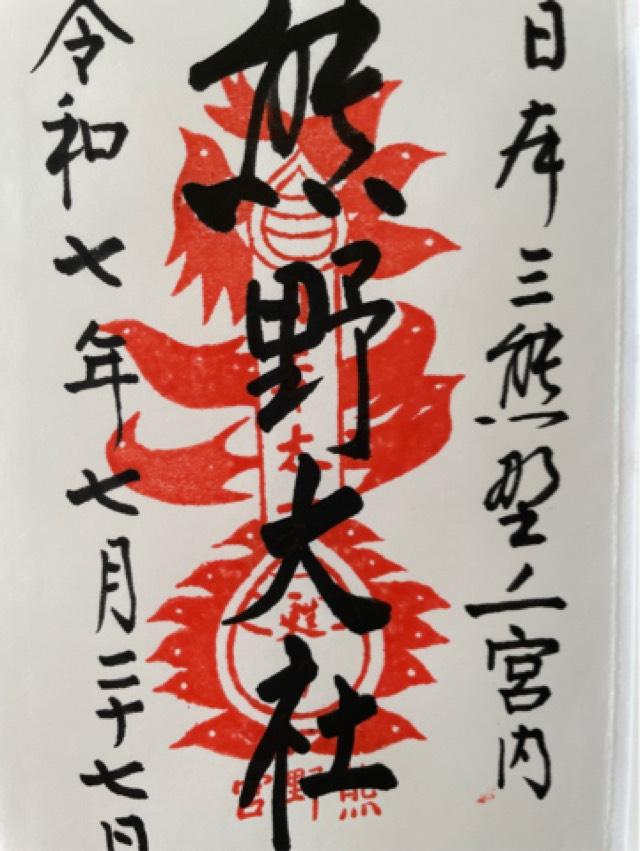 日本三熊野宮内
熊野大社
熊野宮
令和七年七月二十七日